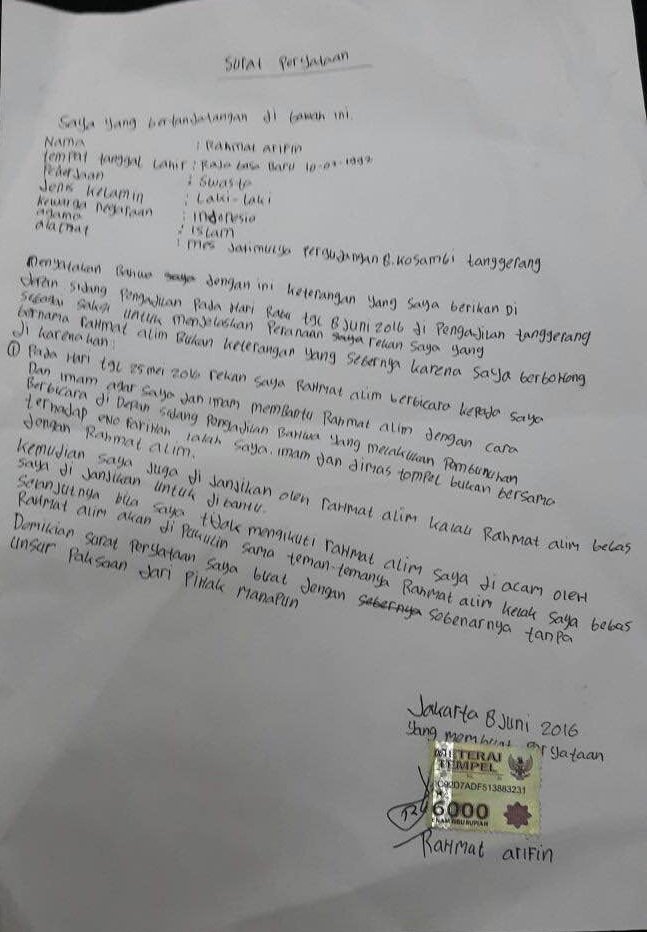 Surat Peryataan
Saya yang bertandatangan di bawah ini.
Nama : Rahmat arifin
tempat tanggal Lahir : Raja basa Baru
Pekerjaan : Swasta
Jenis kelamin : Laki-laki
kewarga negaraan : indonesia
agama : islam
alamat : mes Jatimulya Pergudangan B. Kosambi tanggerang
menyatakan Bahwa saya dengan ini keterangan yang saya berikan Di
depan sidang Pengadilan Pada Hari Rabu tgl 8 Juni 2016 di Pengadilan tanggerang
sebagai saksi untuk menjelaskan Peranaan saya rekan saya yang
bernama rahmat alim Bukan keterangan yang sebernya karena saya berbohong
di karenakan:
① Pada Hari tgl 25 mei 2016 rekan saya Rahmat alim berbicara kepada saya
Dan imam agar saya dan imam membantu Rahmat alim dengan cara
Berbicara di Depan sidang Pengadilan Bahwa yang melakukan Pembunuhan
terhadap eno Farihan ialah saya. imam dan dimas tompel bukan bersama
dengan Rahmat alim.
kemudian saya Juga di Janjikan oleh rahmat alim kalau Rahmat alim bebas
saya di Janjikan untuk dibantu.
selanjutnya bila saya tidak mengikuti rahmat alim saya di acam oleh
Rahmat alim akan di Pukulin sama teman-temanya Rahmat alim kelak saya bebas
Demikian surat Peryataan saya buat dengan sebernya sebenarnya tanpa
unsur Paksaan dari Pihak manapun
Jakarta 8 Juni 2016
yang membuat Peryataan
METERAI
TEMPEL
C92D7ADF513883231
6000
ENAM RIBU RUPIAH
Rahmat arifin